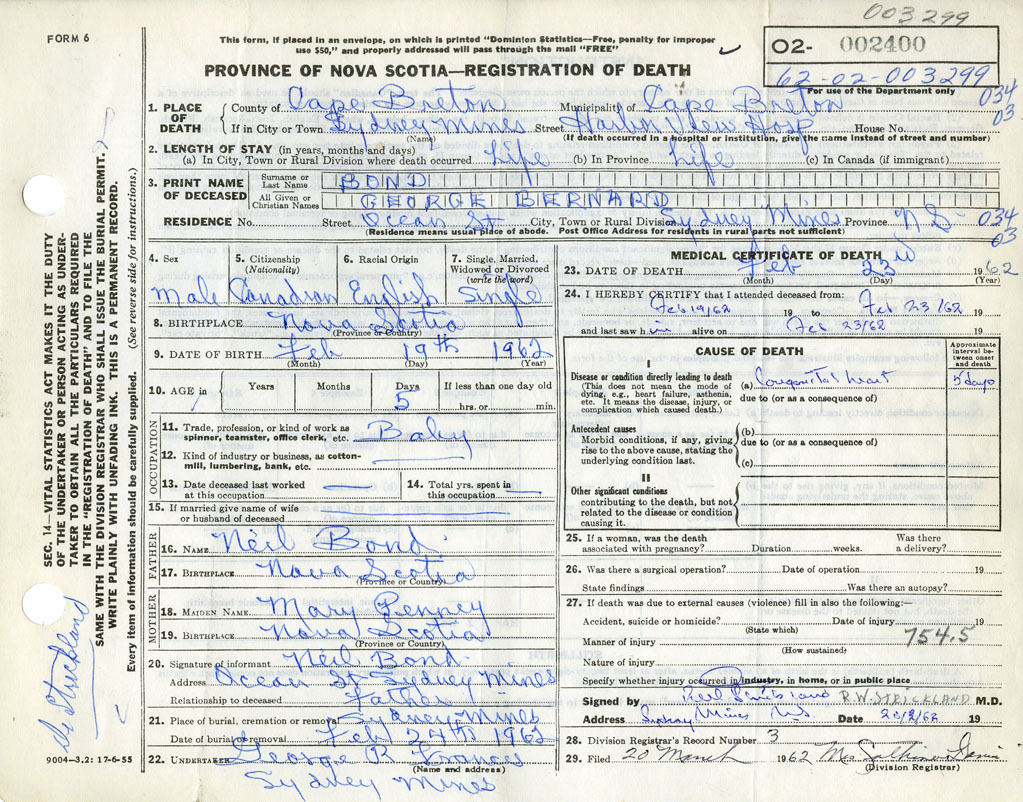 003299
FORM 6
This form, if placed in an envelope, on which is printed "Dominion Statistics—Free, penalty for improper
use $50," and properly addressed will pass through the mail "FREE"
02- 002400
62-02-003299
For use of the Department only
PROVINCE OF NOVA SCOTIA—REGISTRATION OF DEATH
034
03
1. PLACE OF DEATH
County of Cape Breton Municipality of Cape Breton
If in City or Town Sydney Mines Street Harbor View Hosp House No.
(Name) (If death occurred in a hospital or institution, give the name instead of street and number)
2. LENGTH OF STAY (in years, months and days)
(a) In City, Town or Rural Division where death occurred Life (b) In Province Life (c) In Canada (if immigrant)
3. PRINT NAME OF DECEASED
Surname or Last Name BOND
All Given or Christian Names GEORGE BERNARD
RESIDENCE No. Street Ocean St City, Town or Rural Division Sydney Mines Province N.S
034
03
(Residence means usual place of abode. Post Office Address for residents in rural parts not sufficient)
4. Sex 5. Citizenship (Nationality) 6. Racial Origin 7. Single, Married, Widowed or Divorced (write the word)
Male Canadian English Single
8. BIRTHPLACE Nova Scotia
(Province or Country)
9. DATE OF BIRTH Feb 19th 1962
(Month) (Day) (Year)
10. AGE in Years Months Days 5 If less than one day old
hrs. or min.
OCCUPATION
11. Trade, profession, or kind of work as
spinner, teamster, office clerk, etc. Baby
12. Kind of industry or business, as cotton-
mill, lumbering, bank, etc.
13. Date deceased last worked
at this occupation
14. Total yrs. spent in
this occupation
15. If married give name of wife
or husband of deceased
FATHER
16. NAME Neil Bond
17. BIRTHPLACE Nova Scotia
(Province or Country)
MOTHER
18. MAIDEN NAME Mary Penney
19. BIRTHPLACE Nova Scotia
(Province or Country)
20. Signature of informant Neil Bond
Address Ocean St Sydney Mines
Relationship to deceased Father
21. Place of burial, cremation or removal Sydney Mines
Date of burial or removal Feb 24th 1962
22. UNDERTAKER George R Frances
(Name and address)
Sydney Mines
MEDICAL CERTIFICATE OF DEATH
23. DATE OF DEATH Feb 23rd 1962
(Month) (Day) (Year)
24. I HEREBY CERTIFY that I attended deceased from:
Feb 19/62 19 to Feb 23/62 19
and last saw him alive on Feb 23/62 19
CAUSE OF DEATH
Approximate interval between onset and death
I
Disease or condition directly leading to death
(This does not mean the mode of
dying, e.g., heart failure, asthenia,
etc. It means the disease, injury, or
complication which caused death.)
(a) Congenital heart 5 days
due to (or as a consequence of)
Antecedent causes
Morbid conditions, if any, giving
rise to the above cause, stating the
underlying condition last.
(b)
due to (or as a consequence of)
(c)
II
Other significant conditions
contributing to the death, but not
related to the disease or condition
causing it.
25. If a woman, was the death
associated with pregnancy? Duration weeks. Was there
a delivery?
26. Was there a surgical operation? Date of operation 19
State findings Was there an autopsy?
27. If death was due to external causes (violence) fill in also the following:—
Accident, suicide or homicide? Date of injury 19
(State which)
Manner of injury 754.5
(How sustained)
Nature of injury
Specify whether injury occurred in industry, in home, or in public place
Signed by R.W. STRICKLAND M.D.
Address Sydney Mines N.S. Date 23/2/62 19
28. Division Registrar's Record Number 3
29. Filed 20 March 1962
(Division Registrar)
SEC. 14—VITAL STATISTICS ACT MAKES IT THE DUTY
OF THE UNDERTAKER OR PERSON ACTING AS UNDER-
TAKER TO OBTAIN ALL THE PARTICULARS REQUIRED
IN THE "REGISTRATION OF DEATH" AND TO FILE THE
SAME WITH THE DIVISION REGISTRAR WHO SHALL ISSUE THE BURIAL PERMIT.
WRITE PLAINLY WITH UNFADING INK. THIS IS A PERMANENT RECORD.
Every item of information should be carefully supplied. (See reverse side for instructions.)
Dr Strickland
9004—3.2: 17-6-55